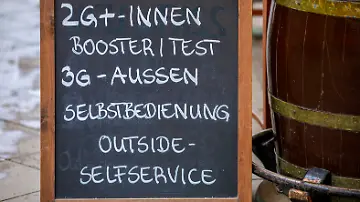 2G+-INNEN
BOOSTER/TEST
3G-AUSSEN
SELBSTBEDIENUNG
OUTSIDE-
SELFSERVICE